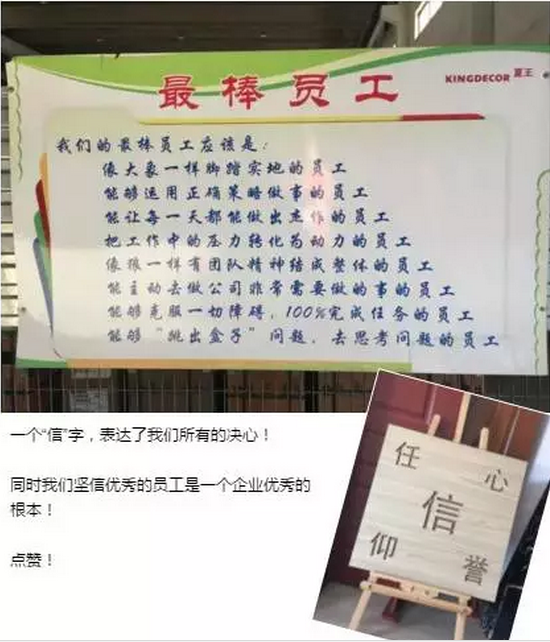 最棒员工
KINGDECOR 夏王
我们的最棒员工应该是：
像大象一样脚踏实地的员工
能够运用正确策略做事的员工
能让每一天都能做出杰作的员工
把工作中的压力转化为动力的员工
像狼一样有团队精神结成整体的员工
能主动去做公司非常需要做的事的员工
能够克服一切障碍，100%完成任务的员工
能够“跳出盒子”问题，去思考问题的员工
一个“信”字，表达了我们所有的决心！
同时我们坚信优秀的员工是一个企业优秀的
根本！
点赞！
任 心
信
仰 誉